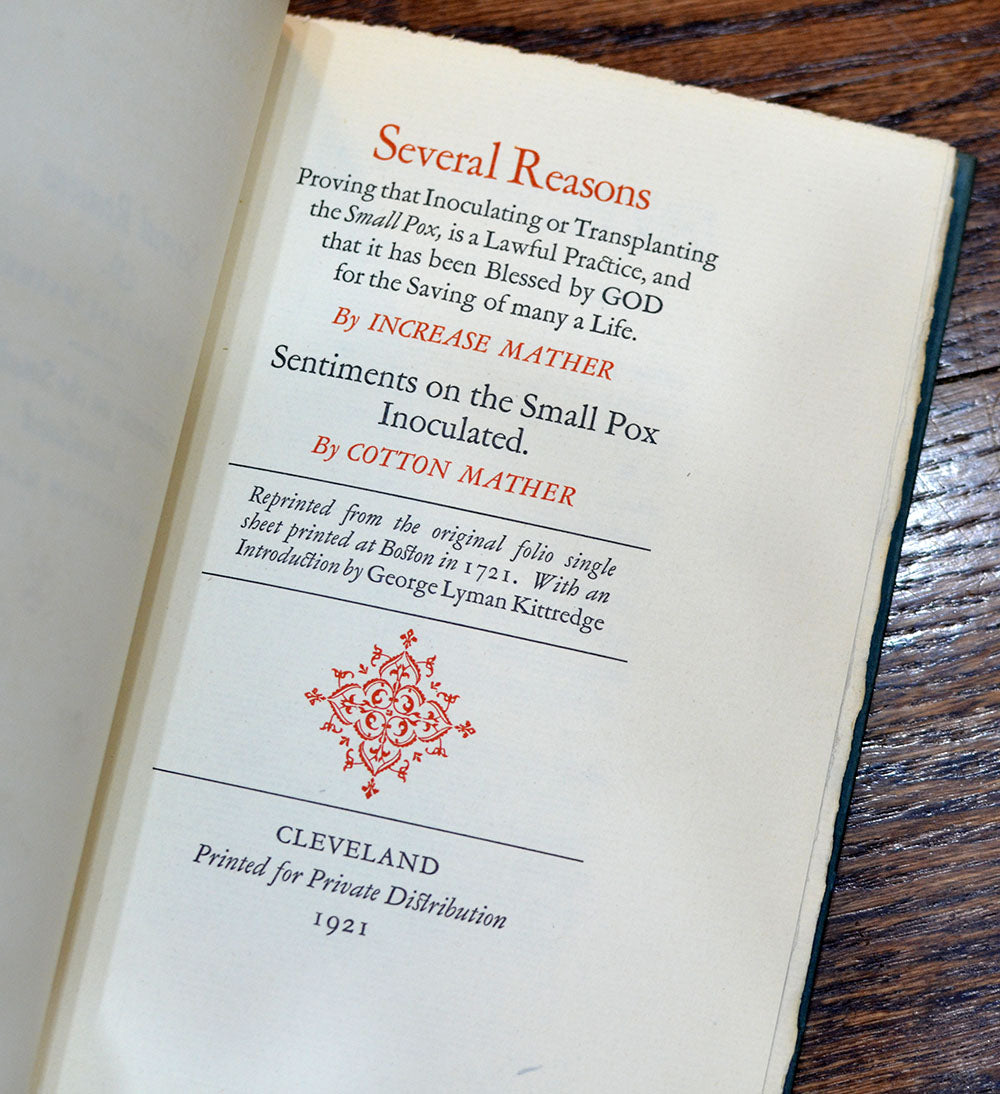 Several Reasons
Proving that Inoculating or Transplanting
the Small Pox, is a Lawful Practice, and
that it has been Blessed by GOD
for the Saving of many a Life.
By INCREASE MATHER
Sentiments on the Small Pox
Inoculated.
By COTTON MATHER
Reprinted from the original folio single
sheet printed at Boston in 1721. With an
Introduction by George Lyman Kittredge
CLEVELAND
Printed for Private Distribution
1921